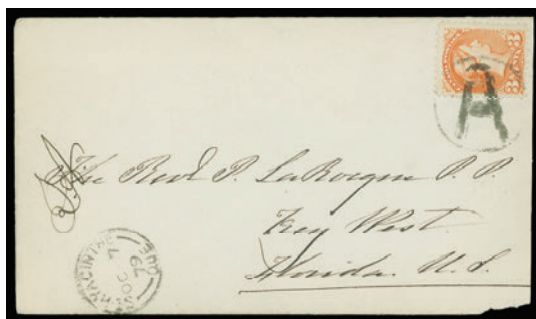 3 3
A
The Revd P. LaRocque P. P.
Key West
Florida. U.S.
HYACINTHE QUE
OC 7
79